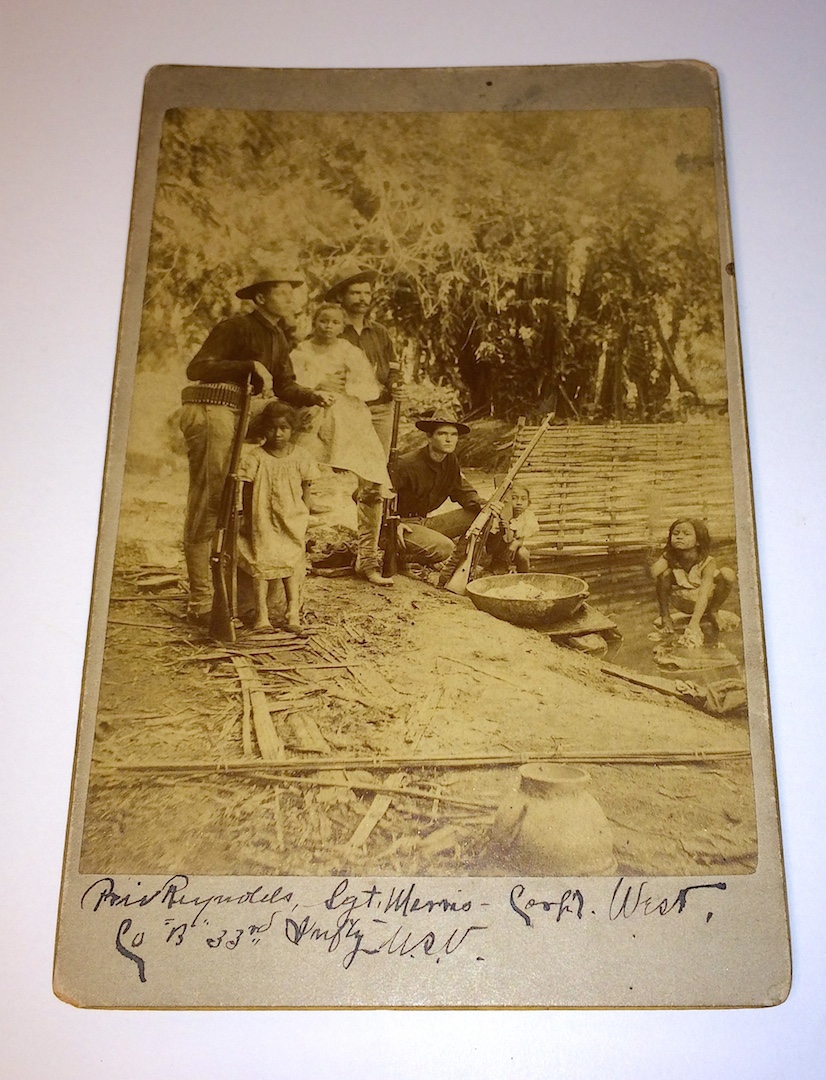 Priv Reynolds, - Sgt. Morris - Corpl. West,
Co "B" 33rd Infty U.S.V.